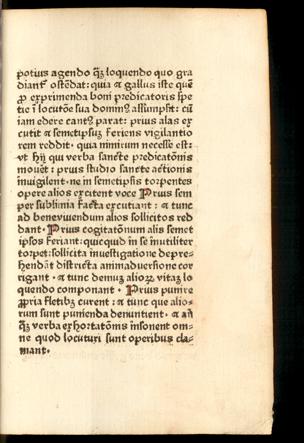 potius agendo qʒ loquendo quo gra
diant᷑ ostēdat: quia ⁊ gallus iste quē
ꝓ exprimenda boni predicatoris spe
cie ī locutōe sua domīꝰ assumpsit: cū
iam edere cantꝰ parat: prius alas ex
cutit ⁊ semetipsuʒ feriens vigilantio
rem reddit · quia nimirum necesse est:
vt hij qui verba sancte predicatōnis
mouēt : prius studio sancte actionis
inuigilent · ne in semetipsis torpentes
opere alios excitent voce · Prius sem
per sublimia facta excutiant : ⁊ tunc
ad beneuiuendum alios sollicitos red
dant · Prius cogitatōnum alis semet
ipsos feriant: quicquid in se inutiliter
torpet: sollicita inuestigatione depre-
hendāt districta animaduersione cor
rigant · ⁊ tunc demuʒ alioꝝ vitaʒ lo
quendo componant · Prius punire
ꝓpria fletibꝫ curent : ⁊ tunc que alio-
rum sunt punienda denuntient · ⁊ an̄
qʒ verba exhortatōnis insonent om-
ne quod locuturi sunt operibus cla-
mant ·